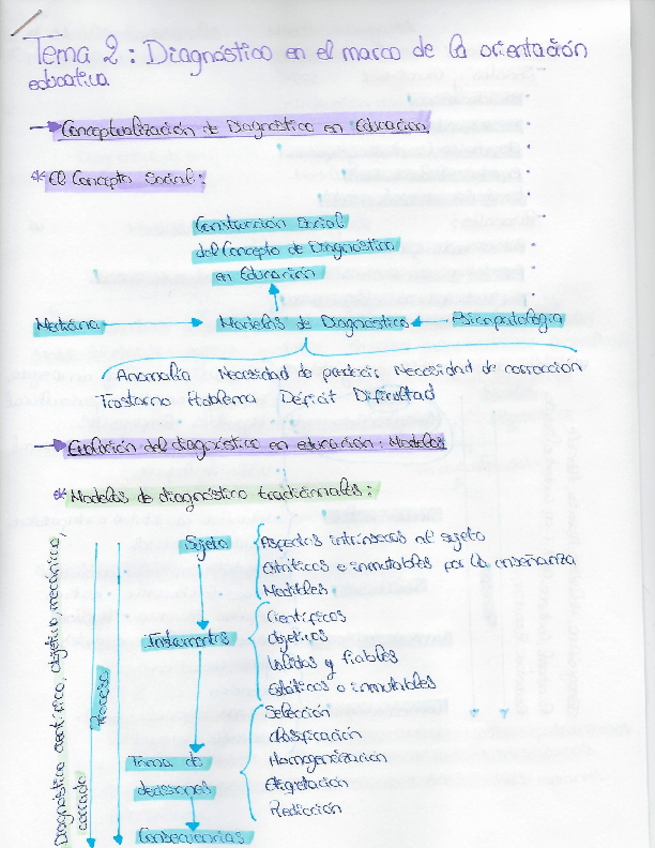 Tema 2: Diagnóstico en el marco de la orientación
educativa
Conceptualización de Diagnóstico en Educación
* El Concepto Social:
Construcción Social
del Concepto de Diagnóstico
en Educación
Medicina
Modelos de Diagnóstico
Psicopatología
Anomalía Necesidad de predecir Necesidad de corrección
Trastorno Problema Déficit Dificultad
Evolución del diagnóstico en educación: Modelos
* Modelos de diagnóstico tradicionales:
Diagnóstico acrítico, objetivo, mecánico,
cerrado
Proceso
Sujeto
Aspectos intrínsecos al sujeto
Estáticos e inmutables por la enseñanza
Medibles
Instrumentos
Científicos
Objetivos
Válidos y fiables
Estáticos o inmutables
Toma de
decisiones
Selección
Clasificación
Homogenización
Etiquetación
Predicción
Consecuencias